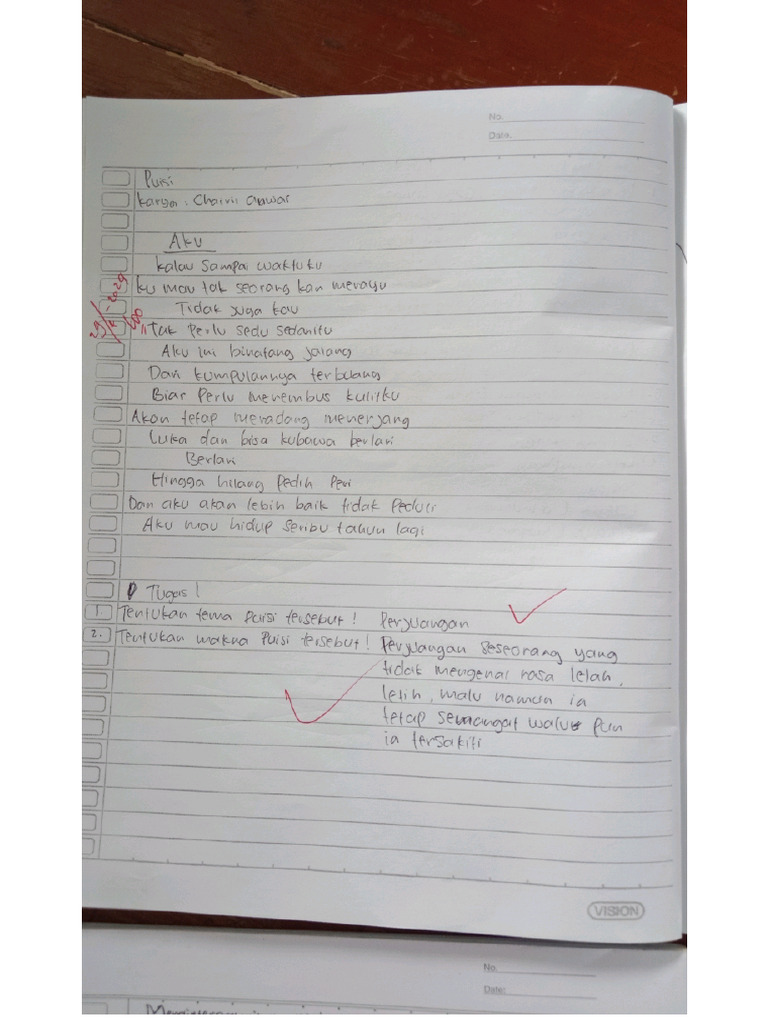 No.
Date.
Puisi
karya : Chairil anwar
Aku
kalau sampai waktuku
ku mau tak seorang kan merayu
Tidak juga kau
Tak perlu sedu sedanitu
Aku ini binatang jalang
Dari kumpulannya terbuang
Biar Perlu menembus kulitku
Akan tetap meradang menerjang
Luka dan bisa kubawa berlari
Berlari
Hingga hilang Pedih Peri
Dan aku akan lebih baik tidak Peduli
Aku mau hidup seribu tahun lagi
Tugas !
1. Tentukan tema Puisi tersebut ! Perjuangan
2. Tentukan makna Puisi tersebut ! Perjuangan seseorang yang
tidak mengenal rasa lelah,
letih, malu namun ia
tetap semangat walau pun
ia tersakiti
100
VISION
No.
Date: